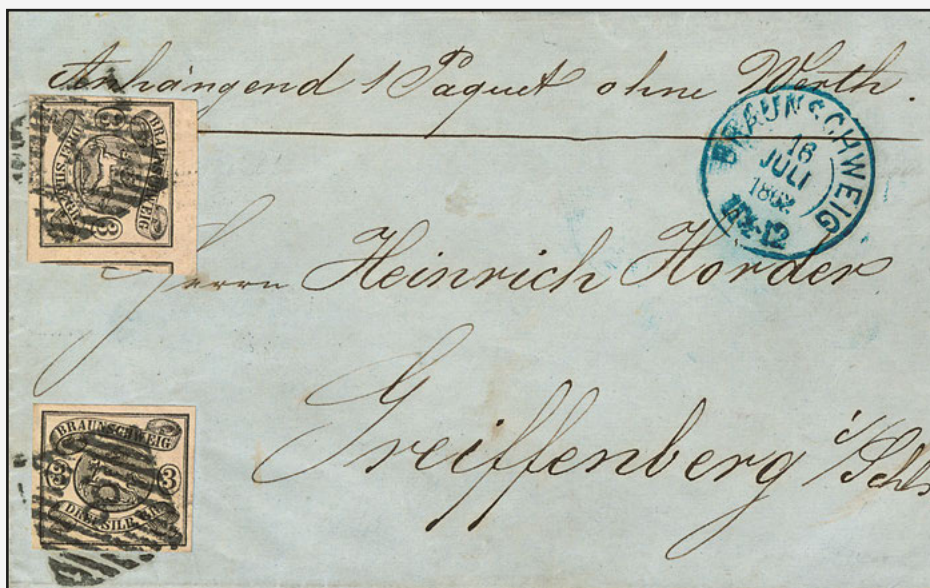 Anhängend 1 Paquet ohne Werth.
BRAUNSCHWEIG
16
JULI
1862
BRAUNSCHWEIG
3
3
DREI SILB. GR.
Herrn Heinrich Horder
Greiffenberg i/Schls
BRAUNSCHWEIG
3
3
DREI SILB. GR.